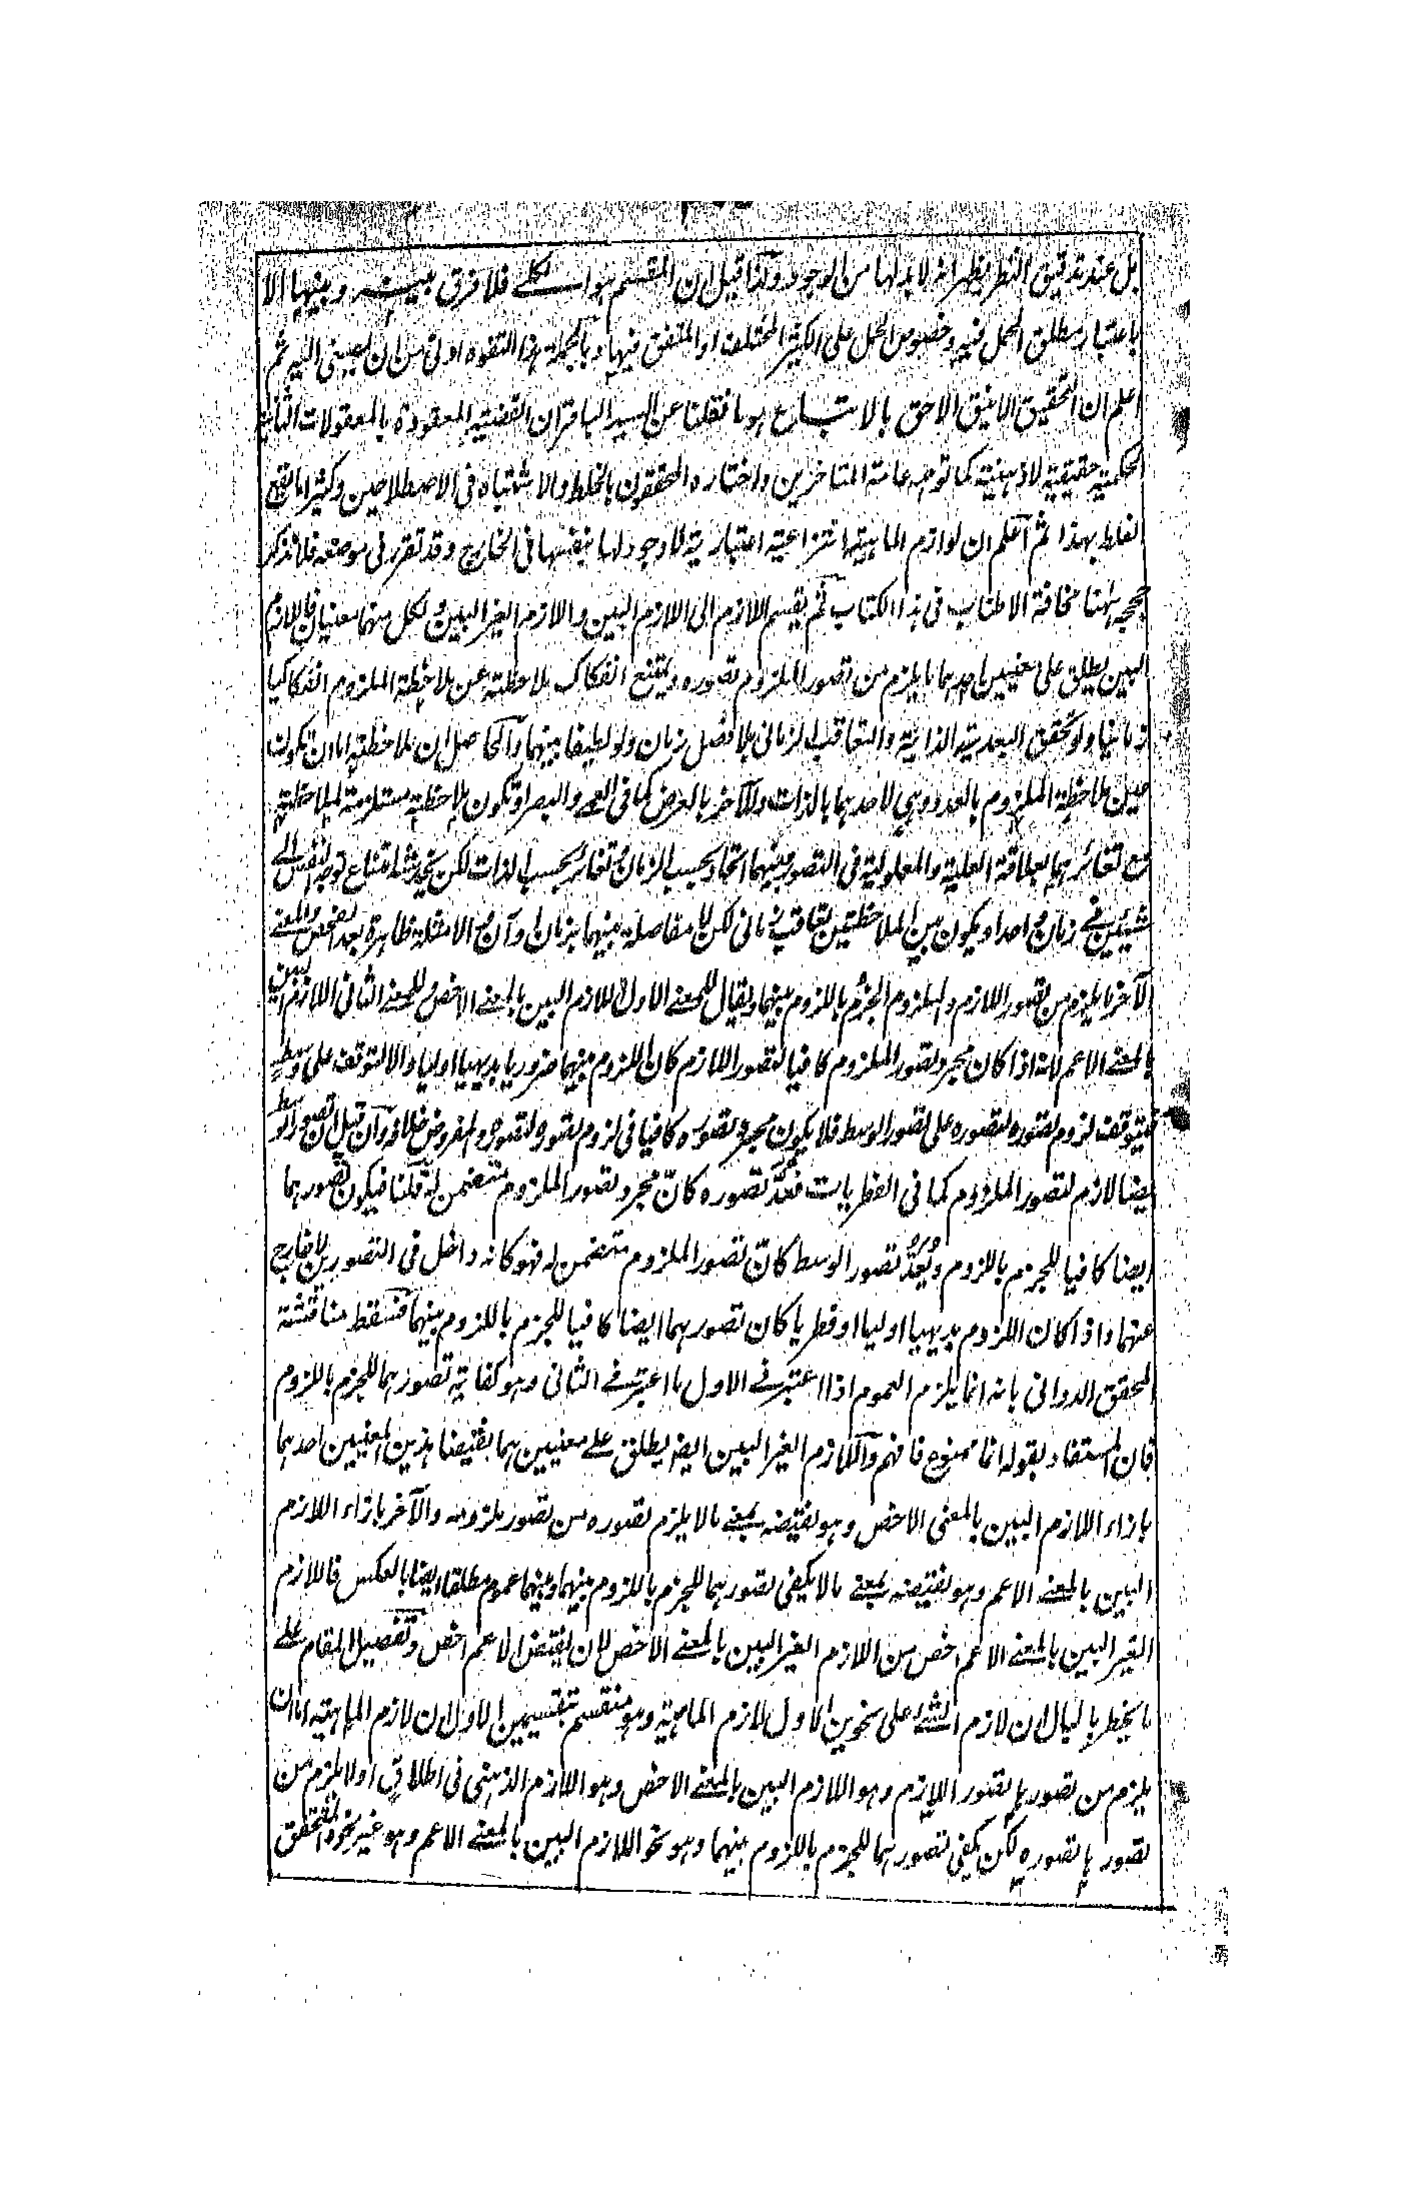 بل عند تدقيق النظر يظهر انه لا بد لها من الوجود ولذا قيل ان المقسم هو الكلي فلا فرق بينه وبينها الا
باعتبار مطلق الحمل فيه وخصوص الحمل على الكثير المختلف او المتفق فيها وبالجملة هذا التفوه اولى من ان يصغى اليه ثم
اعلم ان التحقيق الانيق الاحق بالاتباع هو ما نقلنا عن السيد الباقر ان القضية المعقودة بالمعقولات الثانية
الحكمية حقيقية لا ذهنية كما توهمه عامة المتاخرين واختاره المحققون بالخلط والاشتباه في الاصطلاحين وكثيرا ما يقع
الغلط بهذا ثم اعلم ان لوازم الماهية انتزاعية اعتبارية لا وجود لها بنفسها في الخارج وقد تقرر في موضعه فلا نذكر
حججه ههنا مخافة الاطناب في هذا الكتاب ثم يقسم اللازم الى اللازم البين واللازم الغير البين ولكل منهما معنيان فاللازم
البين يطلق على معنيين احدهما ما يلزم من تصور الملزوم تصوره ويمتنع انفكاك ملاحظته عن ملاحظة الملزوم انفكاكا
زمانيا ولو تحقق البعدية الذاتية والتعاقب الزماني بلا فصل زمان ولو لطيفا بينهما والحاصل ان ملاحظته اما ان تكون
عين ملاحظة الملزوم بالعدد وهي لاحدهما بالذات وللآخر بالعرض كما في العمى والبصر او تكون ملاحظته مستلزمة لملاحظته
مع تغائرهما بعلاقة العلية والمعلولية في التصور بينهما اتحاد بحسب الزمان وتغائر بحسب الذات لكن يخدشه امتناع توجه النفس الى
شيئين في زمان واحد او يكون بين الملاحظتين تعاقب زماني لكن لا مفاصلة بينهما بزمان وآن والامثلة ظاهرة بعد الفحص والمعنى
الآخر ما يلزم من تصور اللازم والملزوم الجزم باللزوم بينهما ويقال للمعنى الاول اللازم البين بالمعنى الاخص وللمعنى الثاني اللازم البين
بالمعنى الاعم لانه اذا كان مجرد تصور الملزوم كافيا لتصور اللازم كان اللزوم بينهما ضروريا بديهيا اوليا والا لتوقف على وسط
فيتوقف لزوم تصوره لتصوره على تصور الوسط فلا يكون مجرد تصوره كافيا في لزوم تصوره لتصوره والمفروض خلافه وان قيل ان تصور الوسط
ايضا لازم لتصور الملزوم كما في الفطريات فعند تصوره كان مجرد تصور الملزوم متضمن له قلنا فيكون تصورهما
ايضا كافيا للجزم باللزوم ويعد تصور الوسط كان تصور الملزوم متضمن له فهو كانه داخل في التصورين لا خارج
عنهما واذا كان اللزوم بديهيا اوليا او فطريا كان تصورهما ايضا كافيا للجزم باللزوم بينهما فسقط مناقشة
المحقق الدواني بانه انما يلزم العموم اذا اعتبر في الاول ما اعتبر في الثاني وهو كفاية تصورهما للجزم باللزوم
فان المستفاد بقوله انما ممنوع فافهم واللازم الغير البين ايضا يطلق على معنيين هما نقيضا هذين المعنيين احدهما
بازاء اللازم البين بالمعنى الاخص وهو نقيضه بمعنى ما لا يلزم تصوره من تصور ملزومه والآخر بازاء اللازم
البين بالمعنى الاعم وهو نقيضه بمعنى ما لا يكفي تصورهما للجزم باللزوم بينهما وبينهما عموم مطلقا ايضا بالعكس فاللازم
الغير البين بالمعنى الاعم اخص من اللازم الغير البين بالمعنى الاخص لان نقيض الاعم اخص وتفصيل المقام على
ما يخطر بالبال ان لازم الشيء على نحوين الاول لازم الماهية وهو منقسم بتقسيمين الاول ان لازم الماهية اما ان
يلزم من تصورها تصور اللازم وهو اللازم البين بالمعنى الاخص وهو اللازم الذهني في اطلاق او لا يلزم من
تصورها تصوره لكن يكفي تصورهما للجزم باللزوم بينهما وهو نحو اللازم البين بالمعنى الاعم وهو غير نحوه المتحقق